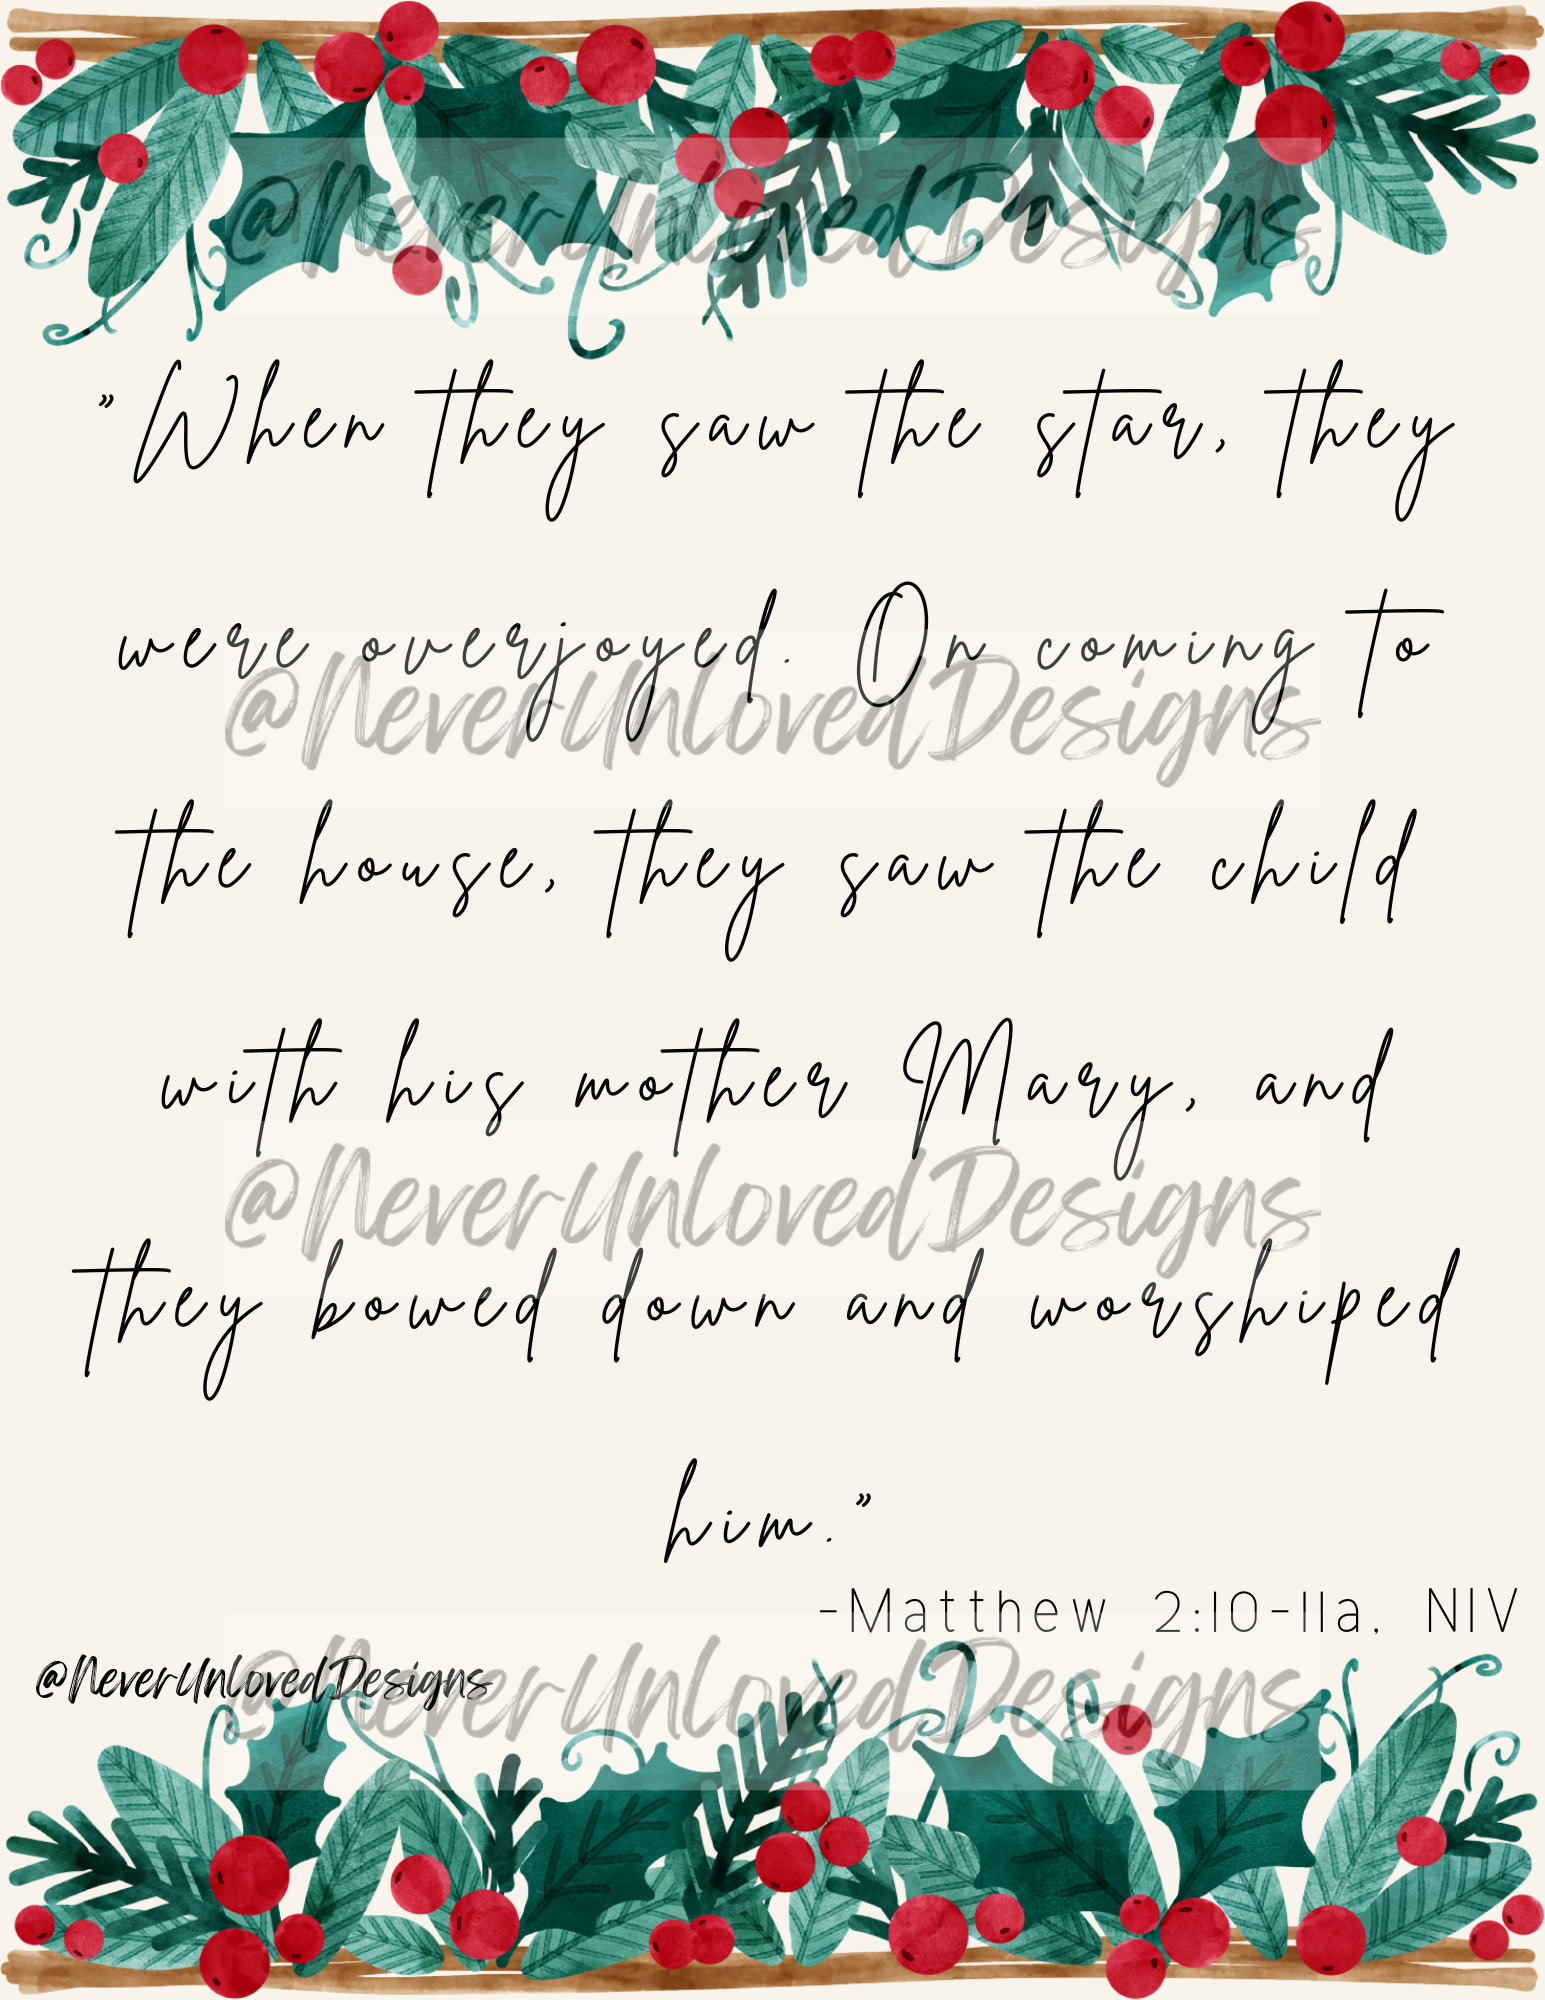 @NeverUnlovedDesigns
”When they saw the star, they
were overjoyed. On coming to
@NeverUnlovedDesigns
the house, they saw the child
with his mother Mary, and
@NeverUnlovedDesigns
they bowed down and worshiped
him.”
-Matthew 2:10-11a, NIV
@NeverUnlovedDesigns
@NeverUnlovedDesigns